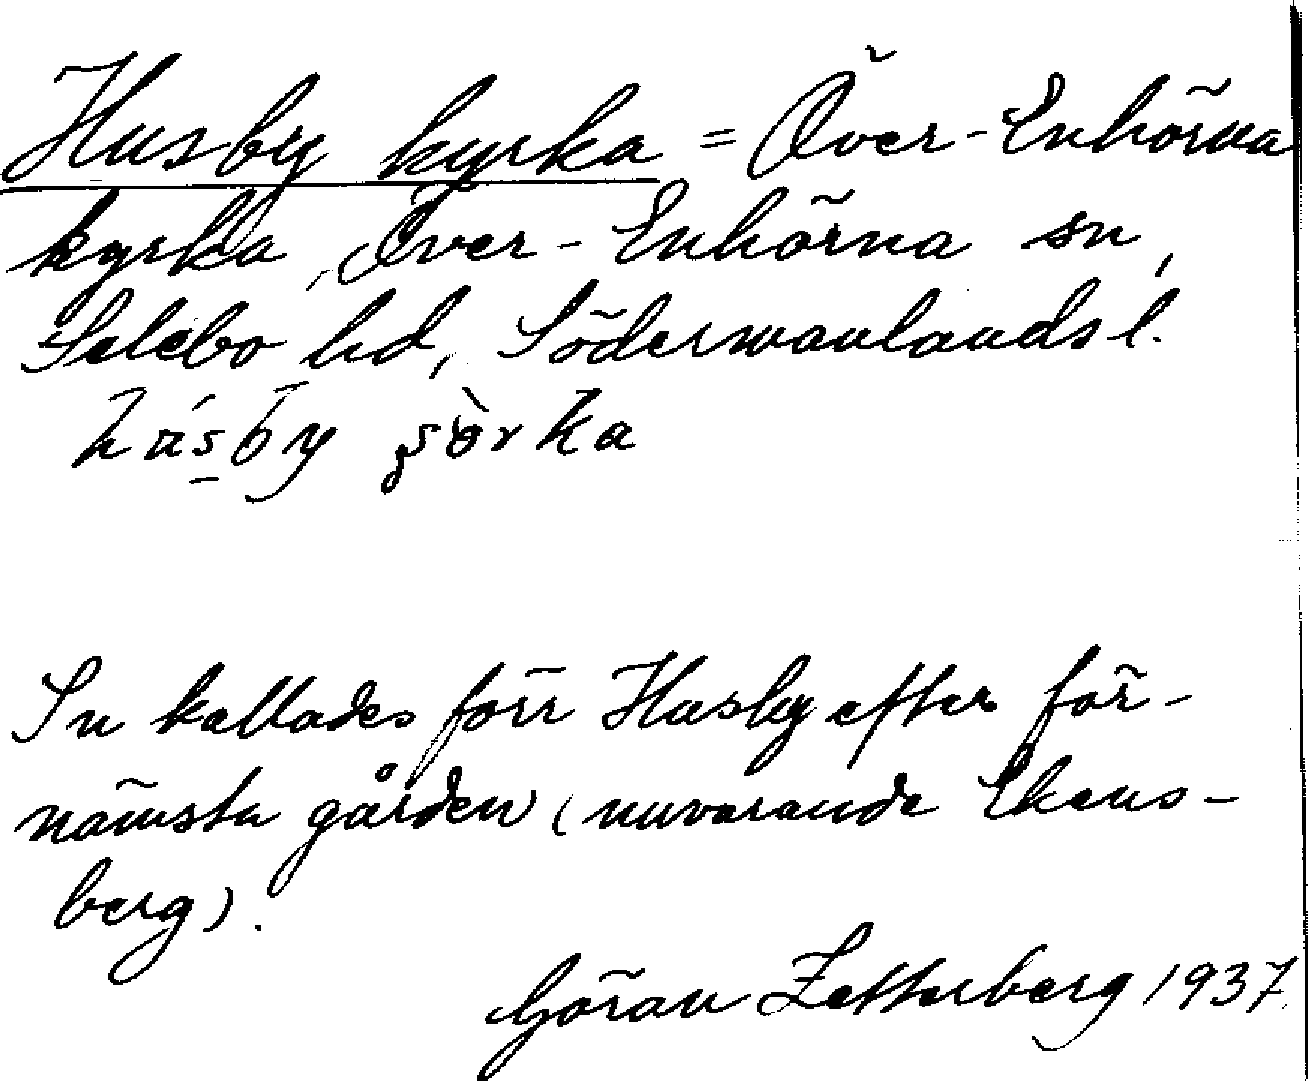 Husby kyrka = Över-Enhörna
kyrka, Över-Enhörna sn,
Selebo hd, Södermanlands l.
Sn kallades förr Husby efter för-
nämsta gården (nuvarande Ekens-
berg).
Göran Zetterberg 1937.